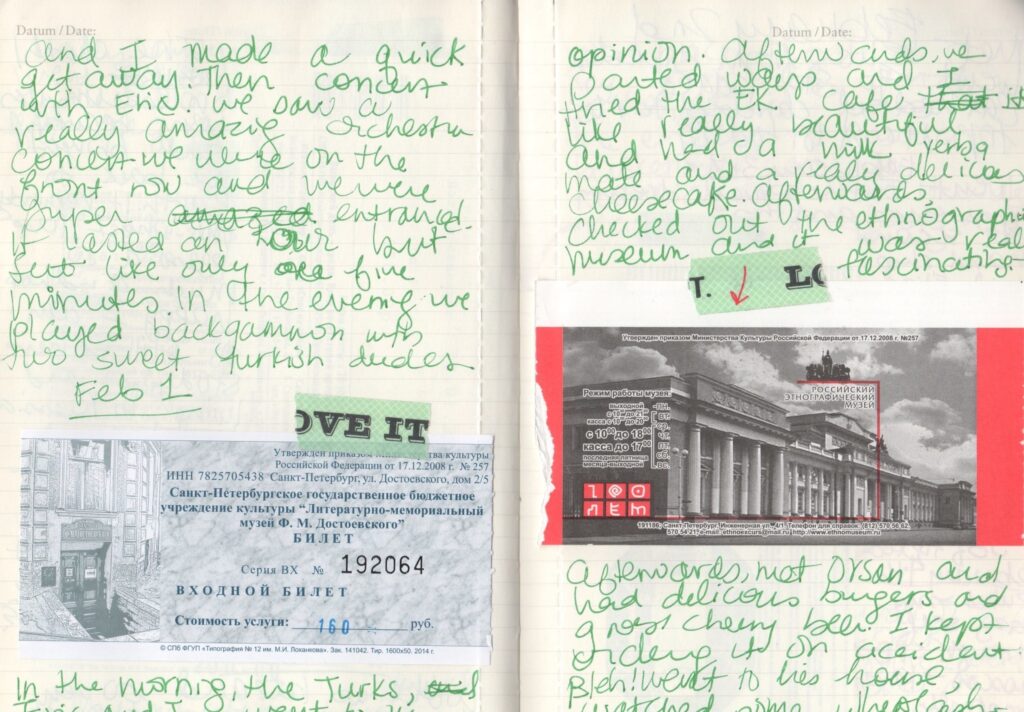 Datum / Date:
and I made a quick
get away. Then concert
with Eric. we saw a
really amazig orchestra
concert we were on the
front row and we were
super amazed entranced.
it lasted an hour but
felt like only one five
minutes. In the evening we
played backgammon with
two sweet turkish dudes
Feb 1
OVE IT
Утвержден приказом Министерства культуры
Российской Федерации от 17.12.2008 г. № 257
ИНН 7825705438 Санкт-Петербург, ул. Достоевского, дом 2/5
Санкт-Петербургское государственное бюджетное
учреждение культуры "Литературно-мемориальный
музей Ф. М. Достоевского"
БИЛЕТ
Серия ВХ № 192064
ВХОДНОЙ БИЛЕТ
Стоимость услуги: 160 руб.
© СПб ФГУП «Типография № 12 им. М.И. Лоханкова». Зак. 141042. Тир. 1600х50. 2014 г.
In the morning, the Turks,
and I went to
Datum / Date:
opinion. Afterwards, we
parted ways and I
tried the EK cafe that is
like really beautiful
and had a milk yerba
mate and a realy delicious
cheesecake. afterwards,
checked out the ethnograph
museum and it was real
fascinating.
T. LO
Утвержден приказом Министерства Культуры Российской Федерации от 17.12.2008 г. №257
РОССИЙСКИЙ
ЭТНОГРАФИЧЕСКИЙ
МУЗЕЙ
Режим работы музея:
выходной ПН.
с 10 до 21 ВТ.
касса с 10 до 20 СР.
с 10⁰⁰ до 18⁰⁰ ЧТ.
касса до 17⁰⁰ ПТ.
последняя пятница СБ.
месяца-выходной ВС.
191186, Санкт-Петербург, Инженерная ул., 4/1. Телефон для справок: (812) 570 56 62,
570 54 21, e-mail: ethnoexcurs@mail.ru http://www.ethnomuseum.ru
afterwards, met Orsan and
had delicious burgers and
gross cherry beer. I kept
ordering it on accident.
Bleh! went to his house,
watched some